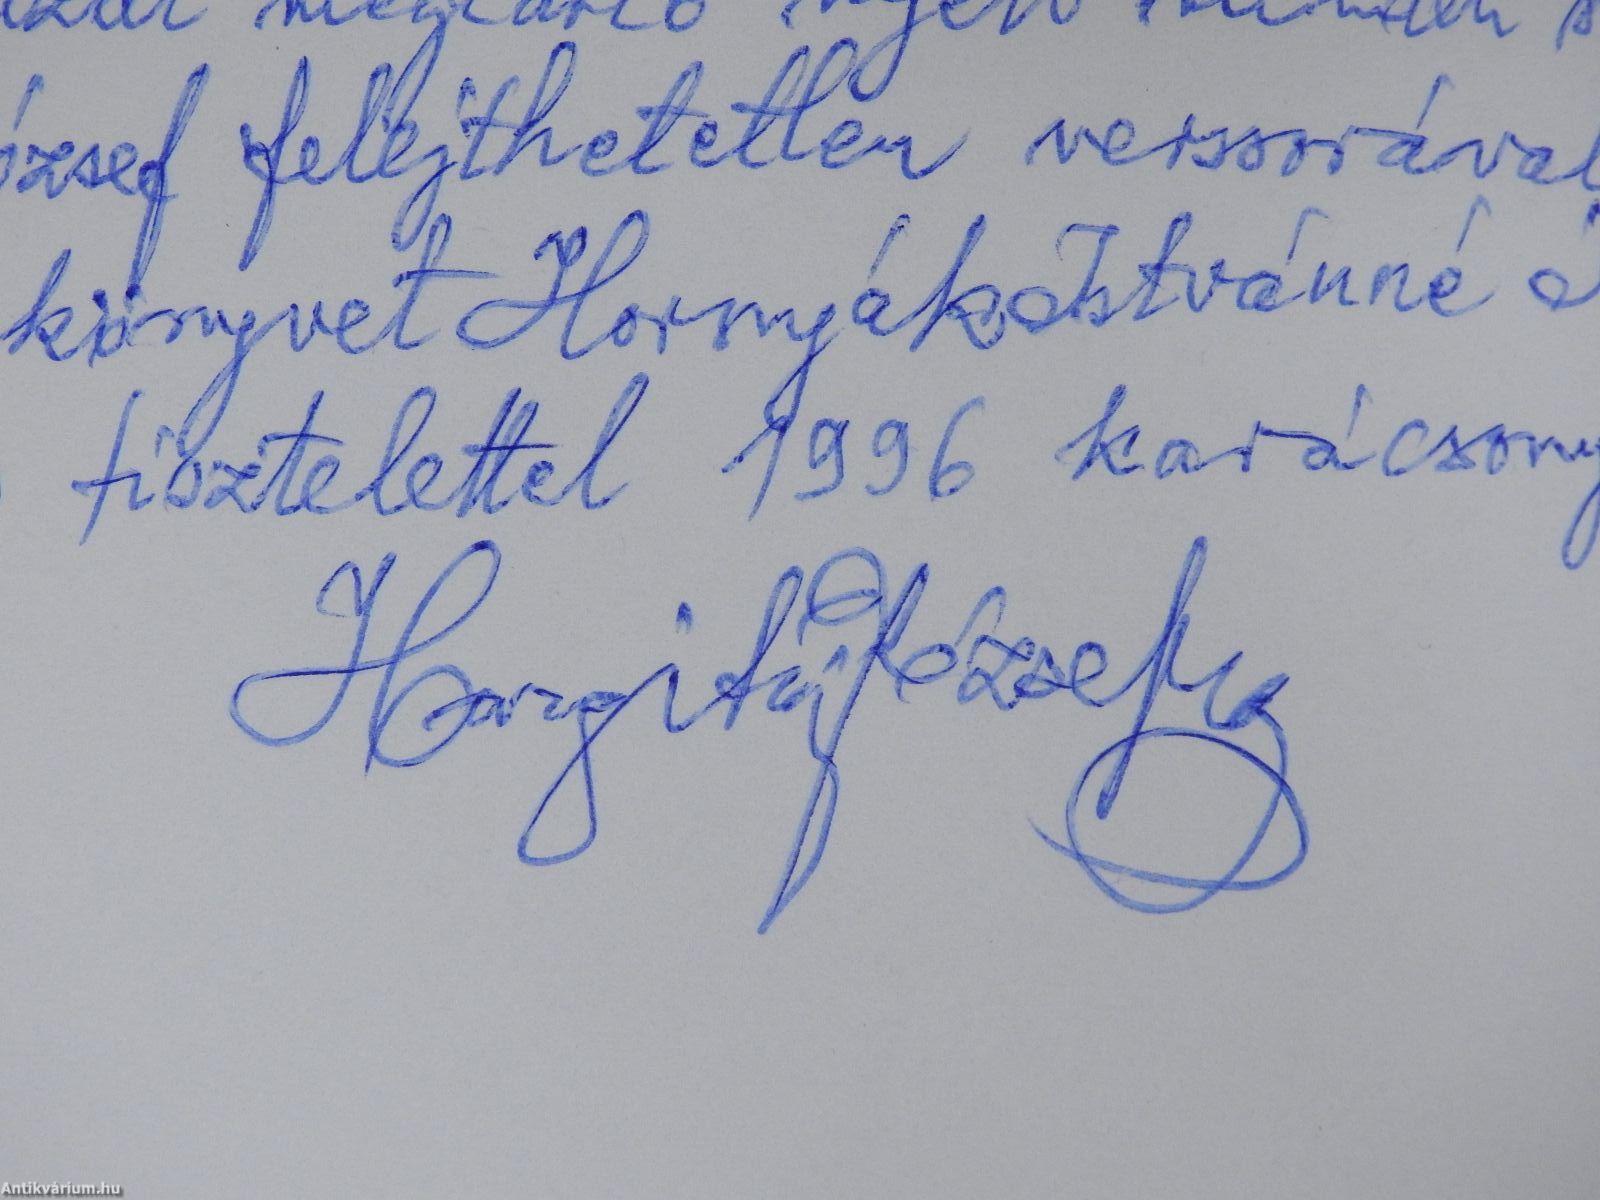 megtartó ilyen minden
József felejthetetlen verssorával
könyvet Hornyák Istvánné
tisztelettel 1996 karácsony
Hargitai József
Antikvárium.hu